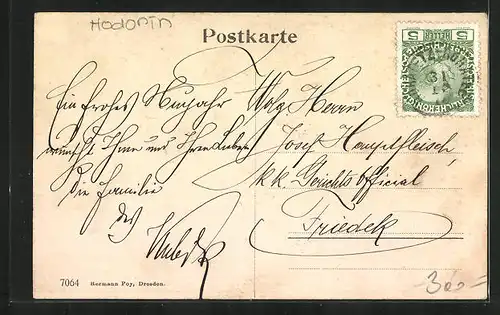 Hodonín
Postkarte
5 5
Ein frohes Neujahr
wünscht Ihnen und Ihren Lieben
die Familie
des
Wolg. Herrn
Josef Hauptfleisch
k.k. Gerichts official
Friedek
7064 Hermann Poy, Dresden.
300=